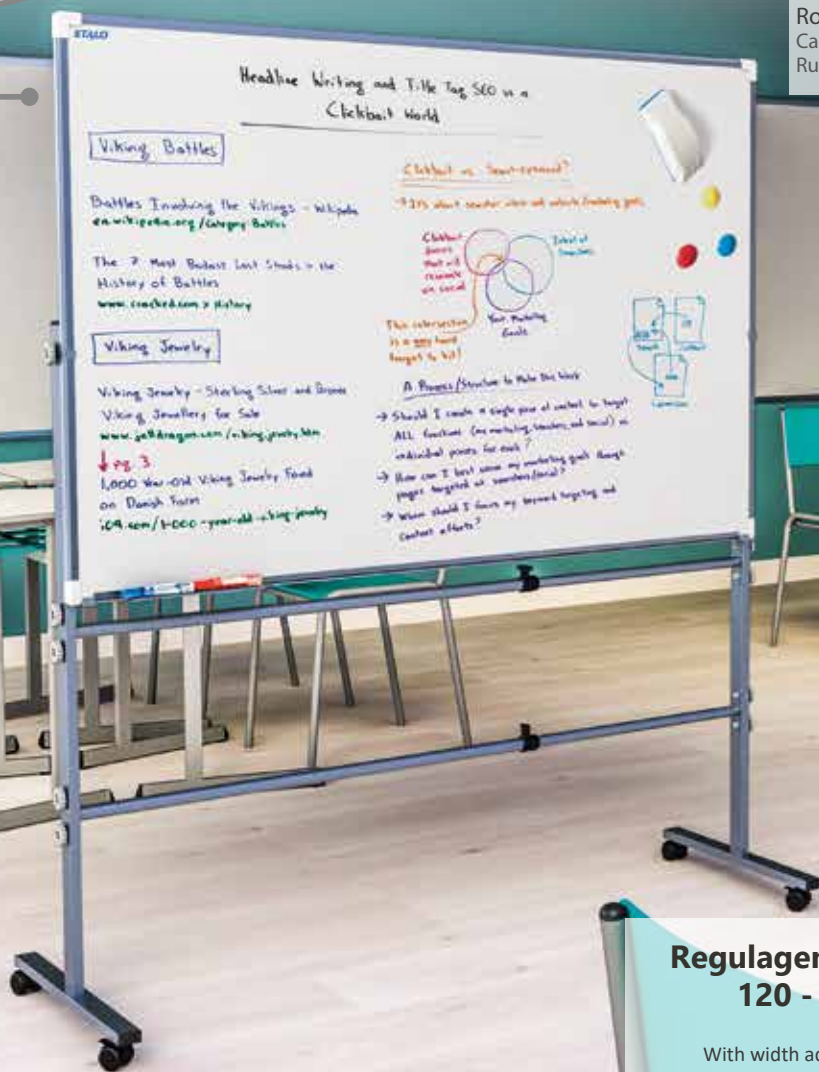 Ro
Ca
Ru
STALO
Headline Writing and Title Tag SEO in a
Clickbait World
Viking Battles
Battles Involving the Vikings - Wikipedia
en.wikipedia.org/Category:Battles
The 7 Most Badass Last Stands in the
History of Battles
www.cracked.com > History
Viking Jewelry
Viking Jewelry - Sterling Silver and Bronze
Viking Jewellery for Sale
www.jelldragon.com/viking_jewelry.htm
pg. 3
1,000 Year-old Viking Jewelry Found
on Danish Farm
io9.com/1-000-year-old-viking-jewelry
Clickbait vs.
Clickbait
pieces
that will
resonate
on social
Intent of
Searchers
Your Marketing
Goals
This intersection
is a very hard
target to hit!
A Process/Structure to Make this Work
→ Should I create a single piece of content to target
ALL functions (my marketing, searchers, and social) vs
individual pieces for each?
→ How can I best serve my marketing goals through
pages targeted at searchers/social?
→ When should I focus my keyword targeting and
content efforts?
Regulagen
120 -
With width ad